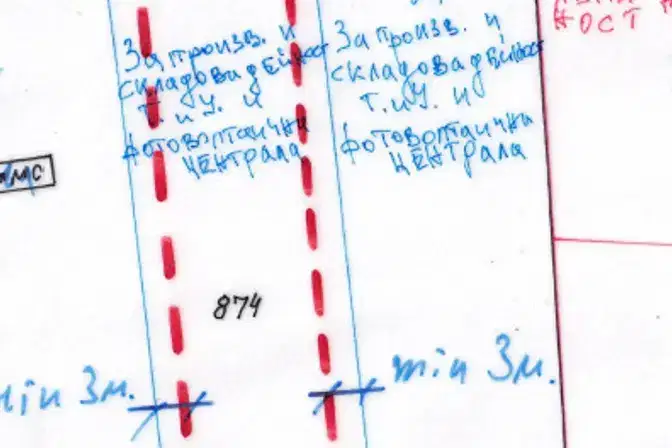 За произв. и
складова дейност
т. и у. и
фотоволтаична
централа
За произв. и
складова дейност
т. и у. и
фотоволтаична
централа
НОСТ
874
min 3м.
min 3м.